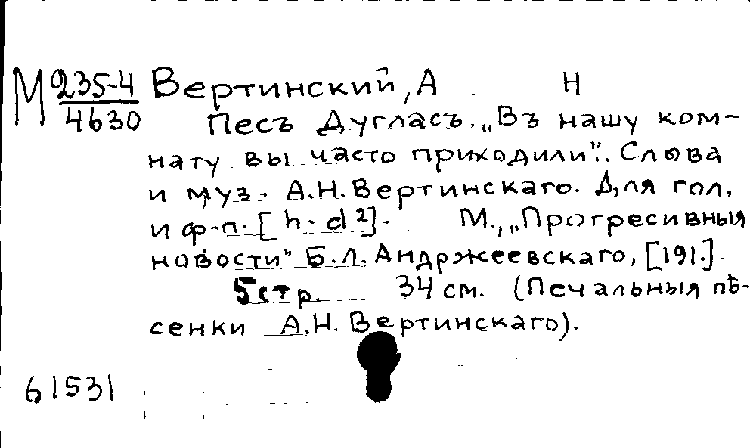 М 235-4 Вертинский, А Н
4630 Песъ Дугласъ. „Въ нашу ком-
нату вы часто приходили". Слова
и муз. А.Н. Вертинскаго. Для гол.
и ф-п. [h-d²]. М., „Прогресивныя
новости" Б.Л. Андржеевскаго, [191.].
5 стр. 34 см. (Печальныя пѣ-
сенки А.Н. Вертинскаго).
61531